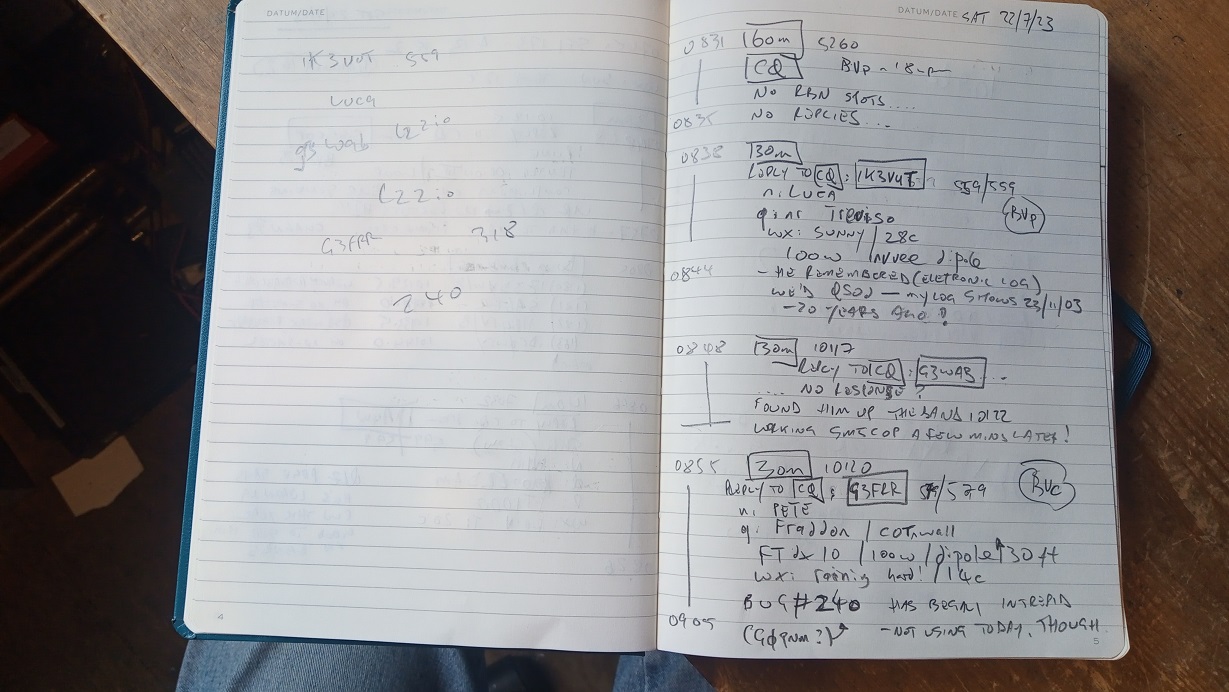 DATUM/DATE
IK3VUT 559
LUCA
LZ2io
g3wab
LZ2io
G3FRR 318
240
4
DATUM/DATE SAT 22/7/23
0831 160m 5260
CQ BVp
NO RBN SPOTS....
0835 NO REPLIES...
0838 30m
REPLY TO CQ: IK3VUT 559/559
n: LUCA
q: nr Treviso BVp
wx: SUNNY / 28c
100w / invee dipole
0844 - HE REMEMBERED (ELETRONIC LOG)
WE'D QSOd — MY LOG SHOWS 23/11/03
- 20 YEARS AGO!
0848 30m 10117
REPLY TO CQ: G3WAB...
.... NO RESPONSE?
FOUND HIM UP THE BAND 10122
WORKING SM5COP A FEW MINS LATER!
0855 30m 10120
REPLY TO CQ: G3FRR /579 BUG
n: PETE
q: Fraddon / Cornwall
FT dx 10 / 100w / dipole ↑ 30 ft
wx: raining hard! / 14c
BUG #240 HAS BEGALI INTREPID
0905 (GØPNM?) - NOT USING TODAY, THOUGH.
5